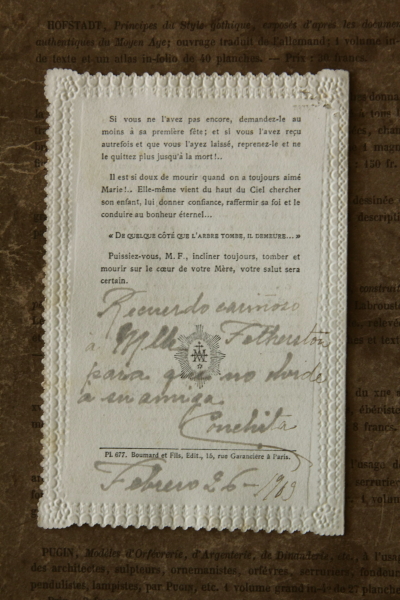 HOFSTADT, Principes du Style gothique, exposés d'après les documents
authentiques du Moyen Age; ouvrage traduit de l'allemand; 1 volume in-
de texte et un atlas in-folio de 40 planches. — Prix: 50 francs
Si vous ne l'avez pas encore, demandez-le au
moins à sa première fête; et si vous l'avez reçu
autrefois et que vous l'ayez laissé, reprenez-le et ne
le quittez plus jusqu'à la mort!..
Il est si doux de mourir quand on a toujours aimé
Marie!.. Elle-même vient du haut du Ciel chercher
son enfant, lui donner confiance, raffermir sa foi et le
conduire au bonheur éternel...
« DE QUELQUE CÔTÉ QUE L'ARBRE TOMBE, IL DEMEURE... »
Puissiez-vous, M. F., incliner toujours, tomber et
mourir sur le cœur de votre Mère, votre salut sera
certain.
Recuerdo cariñoso
à Mlle Fetherston
para que no olvide
a su amiga
Conchita
Pl. 677. Boumard et Fils, Edit., 15, rue Garancière à Paris.
Febrero 26-1903
PUGIN, Modèles d'Orfèvrerie, d'Argenterie, de Dinanderie, etc., à l'usage
des architectes, sculpteurs, ornemanistes, orfèvres, serruriers, fondeurs
pendulistes, lampistes, par PUGIN, etc. 1 volume grand in-4° de 27 planches